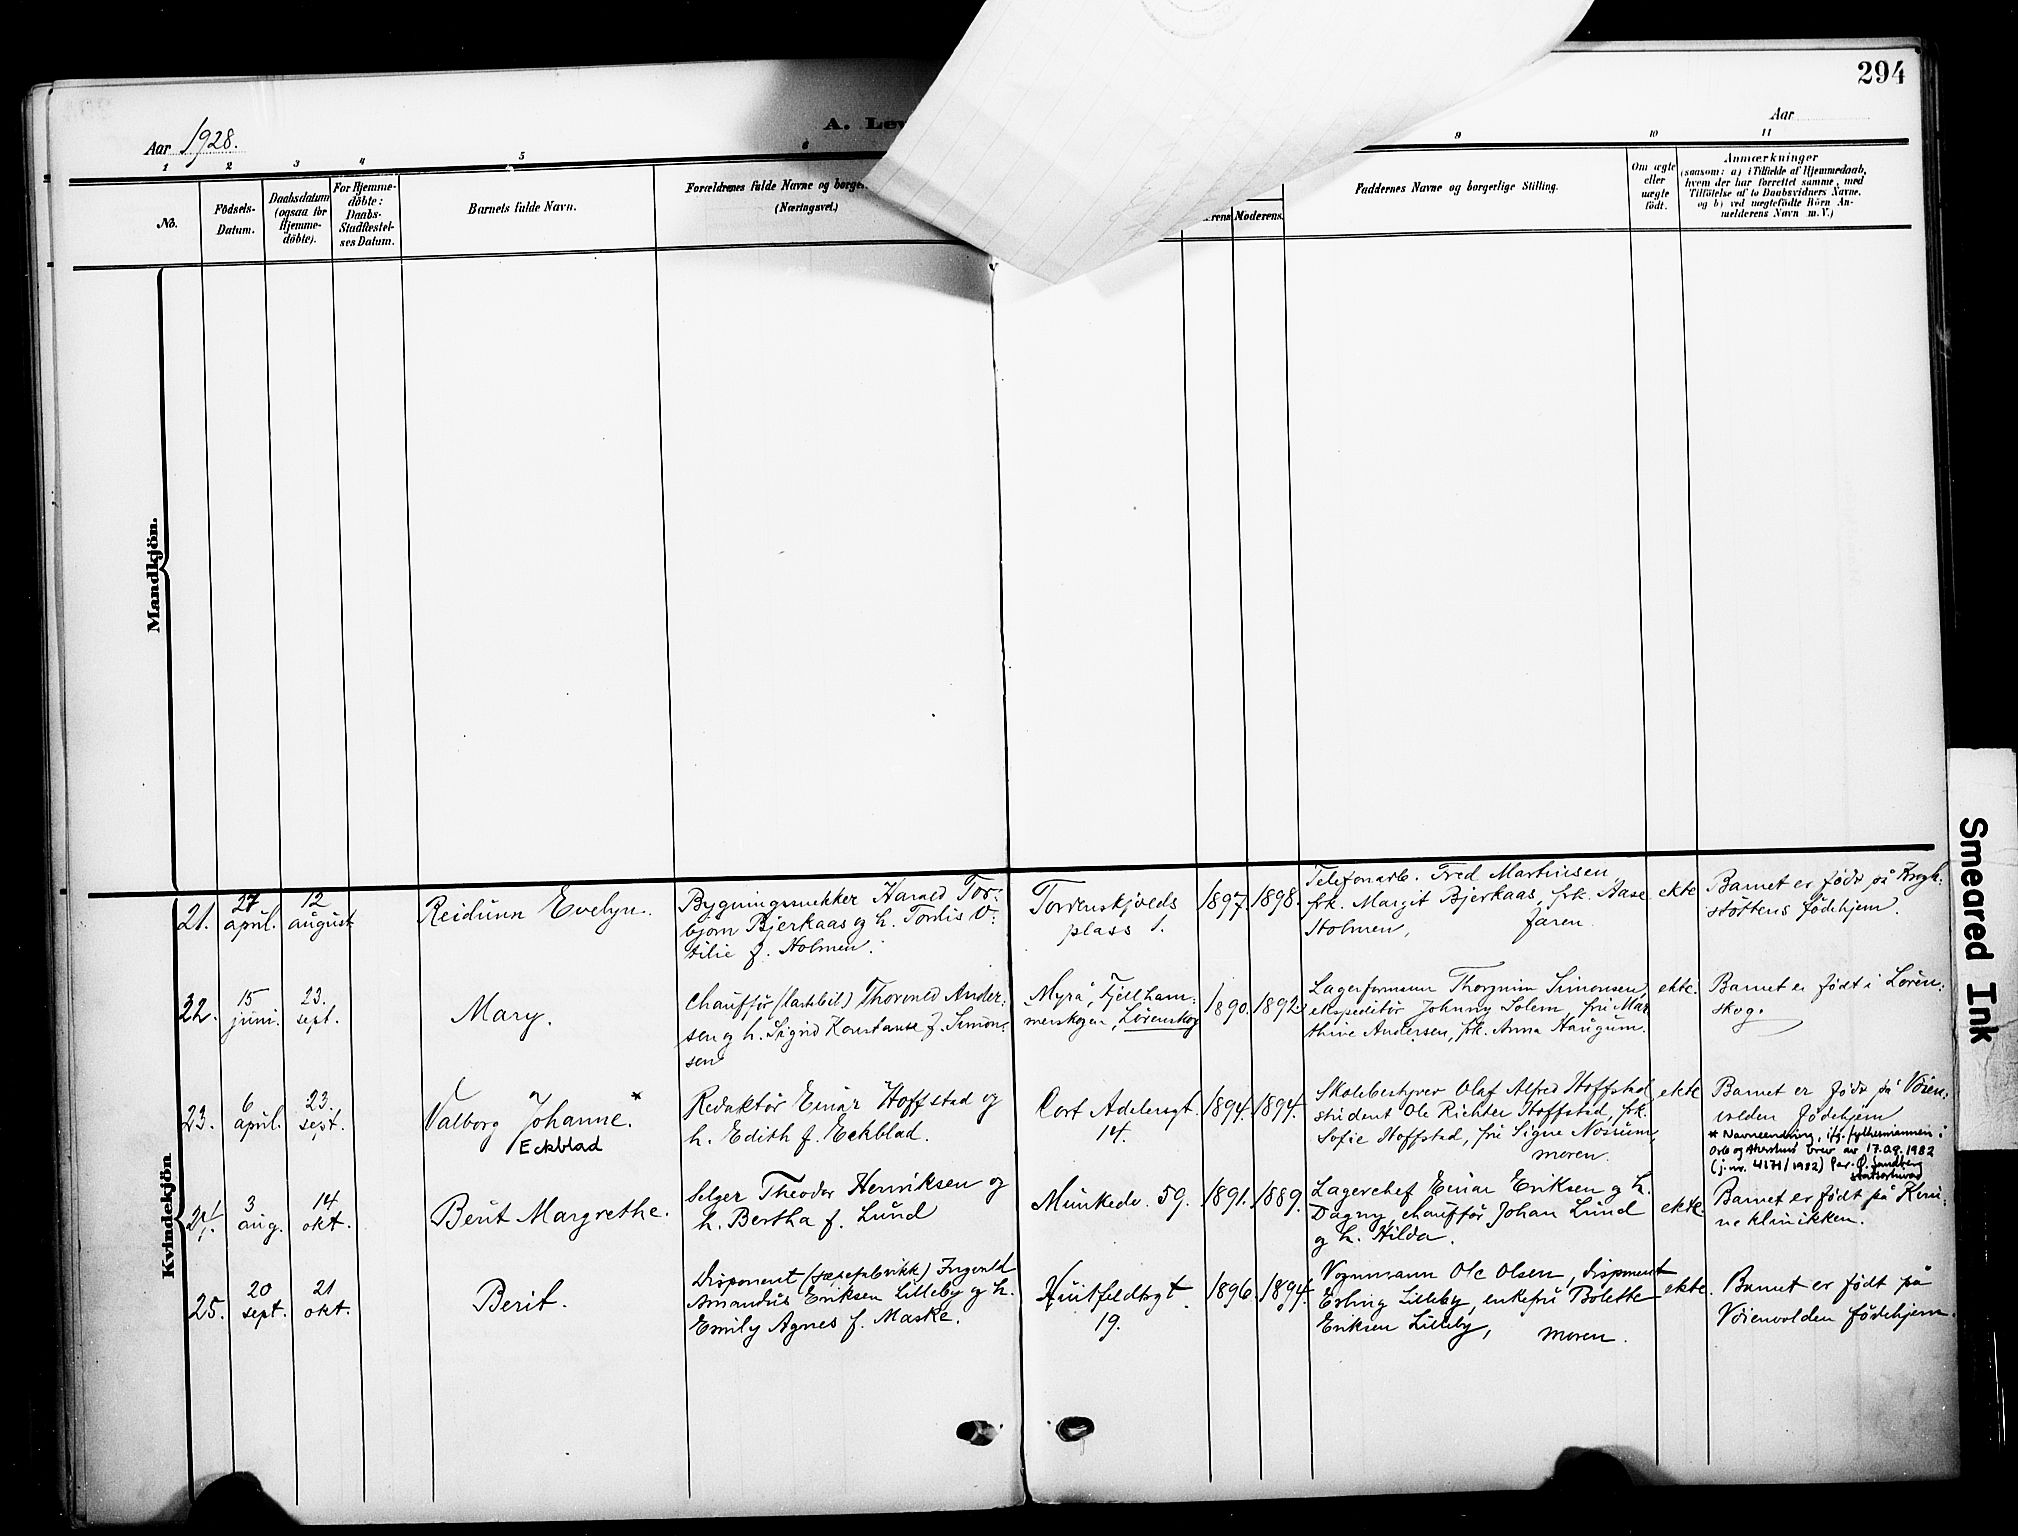 294
Aar 1928.
A. Lev
Aar
1 2 3 4 5 6 9 10 11
No.
Födsels-
Datum.
Daabsdatum
(ogsaa for
Hjemme-
döbte).
For Hjemme-
döbte:
Daabs-
Stadfæstel-
ses Datum.
Barnets fulde Navn.
Forældrenes fulde Navne og borger
(Næringsvei.)
Moderens.
Faddernes Navne og borgerlige Stilling.
Om ægte
eller
uægte
født.
Anmærkninger
(saasom: a) i Tilfælde af Hjemmedaab,
hvem der har forrettet samme, med
Tilföielse af to Daabsvidners Navne.
og b) ved uægtefödte Börn An-
melderens Navn m. V.)
Mandkjön.
Kvindekjön
21.
27
april.
12
august
Reidunn Evelyn.
Bygningssnekker Harald Tor-
bjørn Bjerkaas og h. Tordis O-
tilie f. Holmen.
Tordenskjolds
plass 1.
1897. 1898.
Telefonarb. Fred Martinsen,
frk. Margit Bjerkaas, frk. Aase
Holmen, faren.
ekte
Barnet er født på Krogh-
støttens fødehjem.
22.
15
juni.
23.
sept.
Mary.
Chauffør (lastebil) Thorvald Ander-
sen og h. Sigrid Konstanse f. Simon-
sen
"Myra", Fjellham-
merskogen, Lørenskog
1890. 1892.
Lagerformann Thorgrim Simonsen,
ekspeditør Johnny Solem, fru Mar-
thine Andersen, frk. Anna Haugum.
ekte.
Barnet er født i Løren-
skog.
23.
6
april.
23.
sept.
Valborg Johanne.*
Eckblad
Redaktør Einar Hoffstad og
h. Edith f. Eckblad.
Cort Adelersgt.
14.
1894. 1894.
Skolebestyrer Olaf Alfred Hoffstad,
student Ole Richter Hoffstad, frk.
Sofie Hoffstad, fru Signe Nosum,
moren.
ekte
Barnet er født på Vøien-
volden fødehjem
* Navneendring, ifg. fylkesmannen i
Oslo og Akershus brev av 17.09.1982
(j.nr. 4171/1982) Per. Ø. Sandberg
statsarkivar
24.
3
aug.
14
okt.
Berit Margrethe.
Selger Theodor Henriksen og
h. Bertha f. Lund
Munkedv. 59.
1891. 1889.
Lagerchef Einar Eriksen og h.
Dagny, chauffør Johan Lund
og h. Hilda.
ekte
Barnet er født på Kvin-
neklinikken.
25.
20
sept.
21
okt.
Berit.
Disponent (sæpefabrikk) Ingvald
Amandus Eriksen Lilleby og h.
Emily Agnes f. Maske.
Huitfeldtsgt.
19.
1896. 1894.
Vognmann Ole Olsen, disponent
Erling Lilleby, enkefru Bolette
Eriksen Lilleby, moren.
ekte.
Barnet er født på
Vøienvolden fødehjem.
Smeared Ink